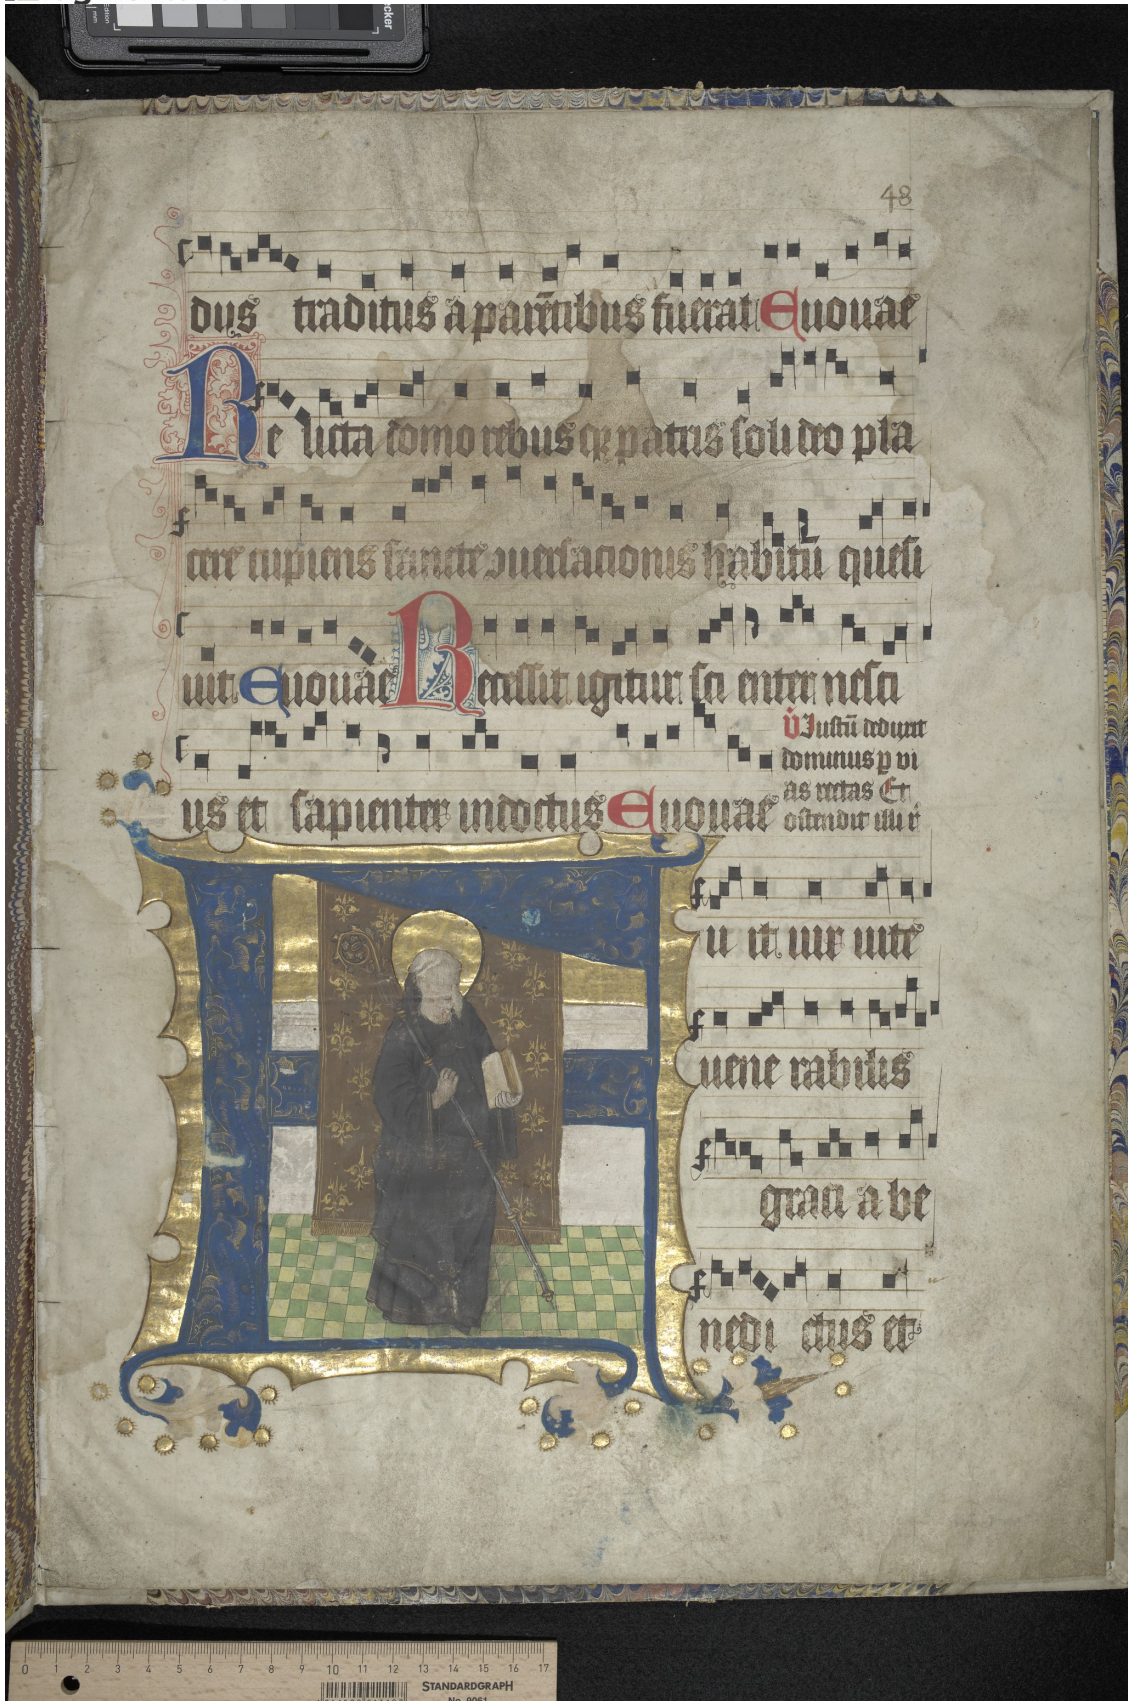 48
dus traditus a parētibus fuerat Euouae
Re licta domo rebusqꝫ patris soli deo pla
cere cupiens sancte ꝯuersacionis habitū quesi
uit Euouae Recessit igitur sci enter nesci
us et sapienter indoctus Euouae
V̇ Justū deduxit
dominus ꝑ vi
as rectas Et
ostendit illi r̄
F u it uir uite
uene rabilis
graci a be
nedi ctus et
0 1 2 3 4 5 6 7 8 9 10 11 12 13 14 15 16 17
STANDARDGRAPH